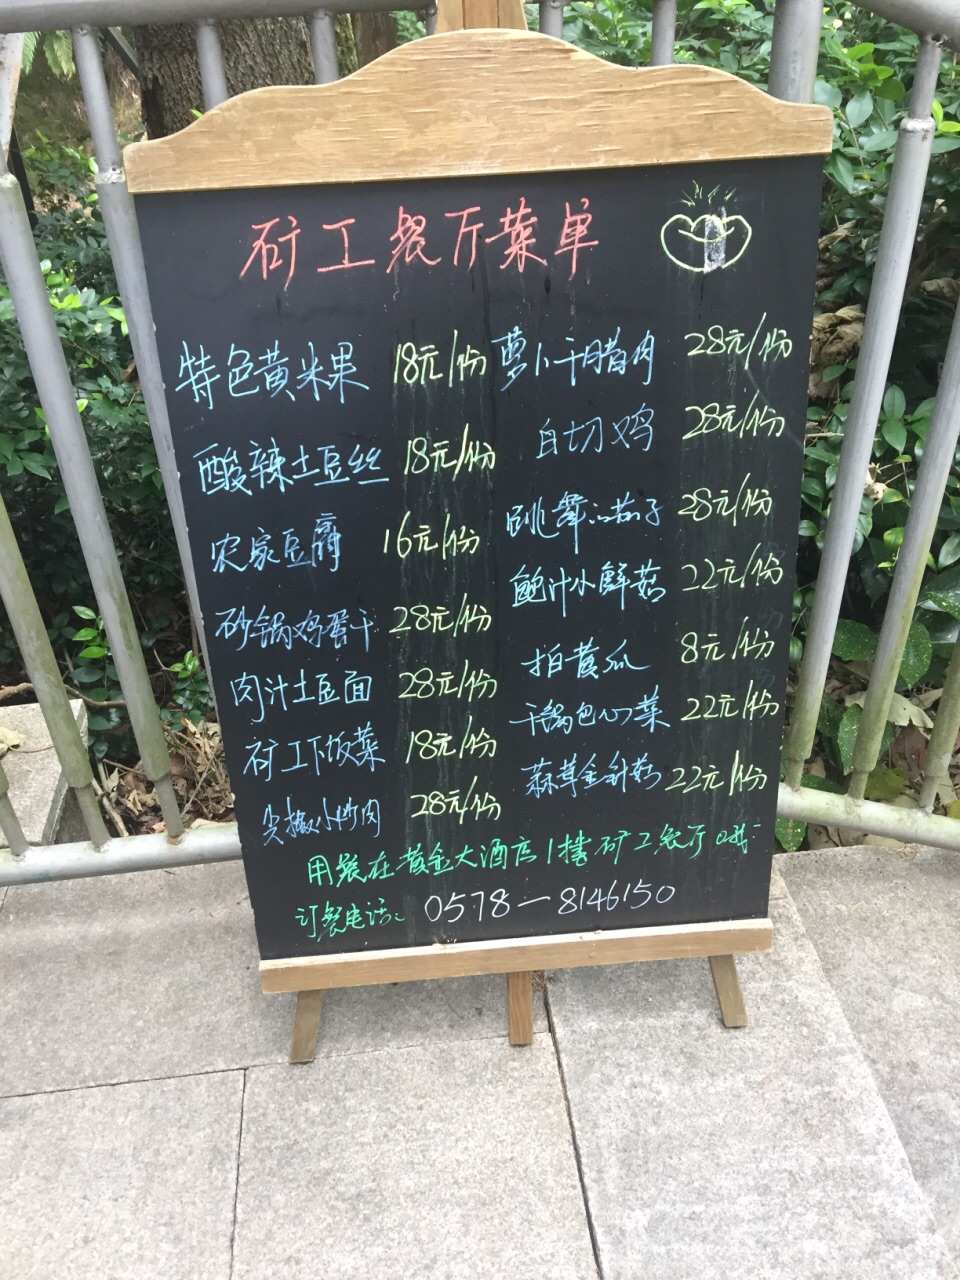 矿工餐厅菜单
特色黄米果 18元/份 萝卜干腊肉 28元/份
酸辣土豆丝 18元/份 白切鸡 28元/份
农家豆腐 16元/份 跳舞的茄子 28元/份
砂锅鸡蛋干 28元/份 鲍汁小鲜菇 22元/份
肉汁土豆面 28元/份 拍黄瓜 8元/份
矿工下饭菜 18元/份 干锅包心菜 22元/份
尖椒小炒肉 28元/份 蒜茸金针菇 22元/份
用餐在黄金大酒店1楼矿工餐厅哦~
订餐电话: 0578-8146150